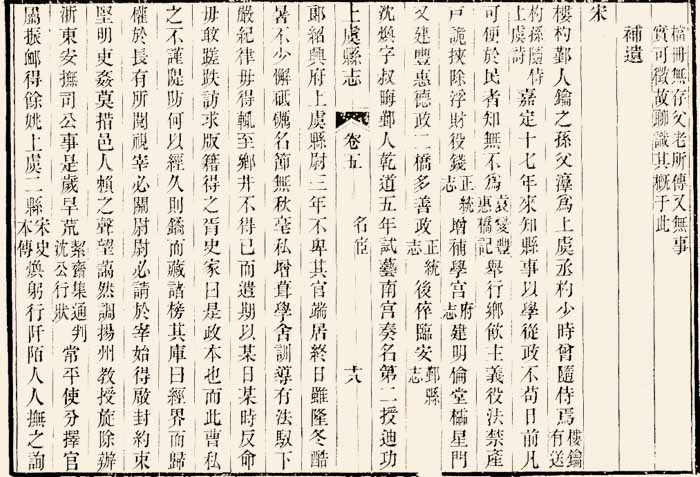 檔冊無存父老所傳又無事
實可徵故聊識其概于此
補遺
宋
樓杓鄞人鑰之孫父𣸣爲上虞丞杓少時曾隨侍焉樓鑰有送
杓孫隨侍上虞詩嘉定十七年來知縣事以學從政不苟日前凡
可便於民者知無不爲袁燮豐惠橋記舉行鄉飲主義役法禁產
戸詭挾除浮財役錢正統志增補學宫府志建明倫堂櫺星門
又建豐惠德政二橋多善政正統志後倅臨安鄞縣志
沈煥字叔晦鄞人乾道五年試藝南宫奏名第二授迪功
上虞縣志
卷五
名宦
十八
郎紹興府上虞縣尉三年不卑其官端居終日雖隆冬酷
暑不少懈砥礪名節無秋毫私增葺學舍訓導有法馭下
嚴紀律毋得輒至鄉井不得已而遣期以某日某時反命
毋敢蹉跌訪求版籍得之胥史家曰是政本也而此曹私
之不謹隄防何以經久則鐍而藏諸榜其庫曰經界而歸
權於長有所閱視宰必關尉尉必請於宰始得啟封約束
堅明史姦莫措邑人賴之聲望藹然調揚州教授旋除辦
浙東安撫司公事是歲旱荒絜齋集通判沈公行狀常平使分擇官
屬振䘏得餘姚上虞二縣宋史本傳煥躬行阡陌人人撫之詢